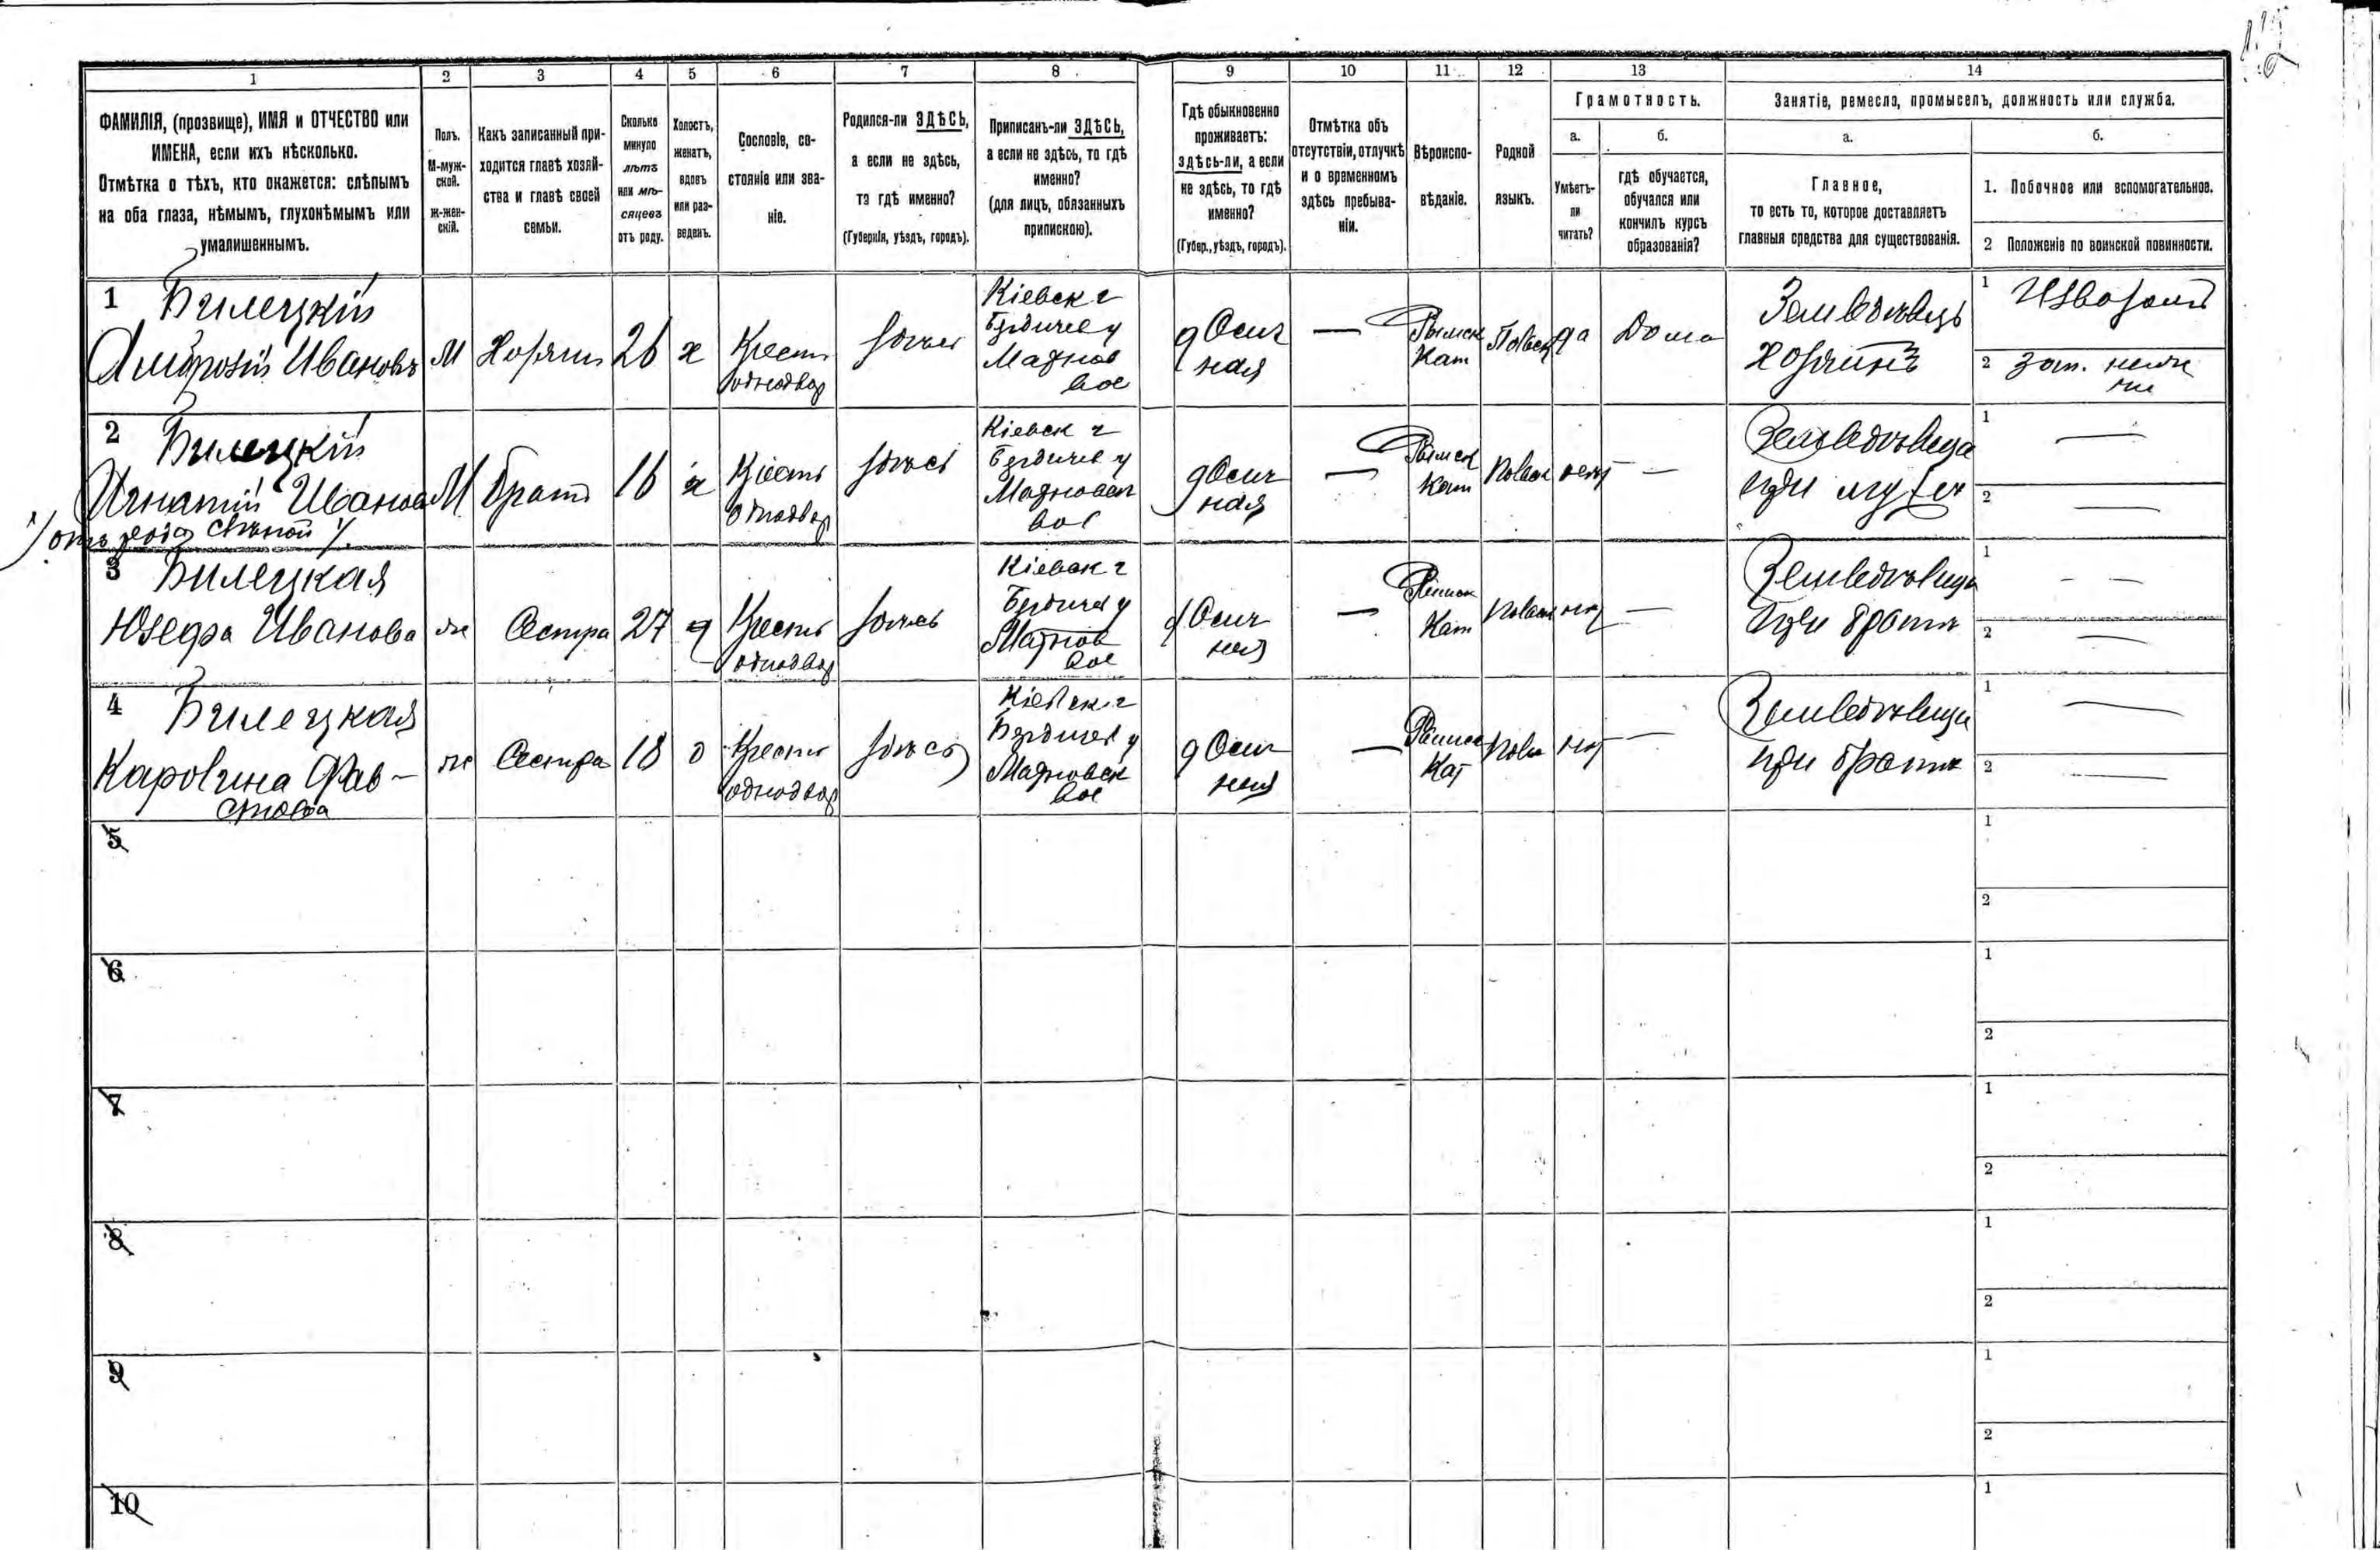 1 2 3 4 5 6 7 8 9 10 11 12 13 14
ФАМИЛІЯ, (прозвище), ИМЯ и ОТЧЕСТВО или
ИМЕНА, если ихъ нѣсколько.
Отмѣтка о тѣхъ, кто окажется: слѣпымъ
на оба глаза, нѣмымъ, глухонѣмымъ или
умалишеннымъ.
Полъ.
М-муж-
ской.
Ж-жен-
скій.
Какъ записанный при-
ходится главѣ хозяй-
ства и главѣ своей
семьи.
Сколько
минуло
лѣтъ
или мѣ-
сяцевъ
отъ роду.
Холостъ,
женатъ,
вдовъ
или раз-
веденъ.
Сословіе, со-
стояніе или зва-
ніе.
Родился-ли ЗДѢСЬ,
а если не здѣсь,
то гдѣ именно?
(Губернія, уѣздъ, городъ).
Приписанъ-ли ЗДѢСЬ,
а если не здѣсь, то гдѣ
именно?
(для лицъ, обязанныхъ
припискою).
Гдѣ обыкновенно
проживаетъ:
здѣсь-ли, а если
не здѣсь, то гдѣ
именно?
(Губер., уѣздъ, городъ).
Отмѣтка объ
отсутствіи, отлучкѣ
и о временномъ
здѣсь пребыва-
ніи.
Вѣроиспо-
вѣданіе.
Родной
языкъ.
Грамотность.
а.
Умѣетъ-
ли
читать?
б.
гдѣ обучается,
обучался или
кончилъ курсъ
образованія?
Занятіе, ремесло, промыселъ, должность или служба.
а.
Главное,
то есть то, которое доставляетъ
главныя средства для существованія.
б.
1. Побочное или вспомогательное.
2 Положеніе по воинской повинности.
1 Билецкій
Амброзій Ивановъ
М
Хозяин
26
х
Крест
однодвор
здѣсь
Кіевск г
Бердичев у
Махнов
вол
д Осич
ная
—
Римск
Кат
Польск
да
Дома
Земледѣлецъ
хозяинъ
1 Извозомъ
2
2 Билецкій
Игнатій Иванов
отъ рода слѣпой
М
брат
16
х
Крест
однодвор
здѣсь
Кіевск г
Бердичев у
Махновск
вол
д Осич
ная
—
Римск
Кат
Польск
нет
—
Земледѣльца
при
1 —
2 —
3 Билецкая
Юзефа Иванова
ж
Сестра
27
Крест
однодвор
здѣсь
Кіевск г
Бердичев у
Махнов
вол
д Осич
ная
—
Римск
Кат
Польск
нет
—
Земледѣлица
при братѣ
1 —
2 —
4 Билецкая
Каролина Фав-
стова
ж
Сестра
18
Крест
однодвор
здѣсь
Кіевск г
Бердичев у
Махновск
вол
д Осич
ная
—
Римск
Кат
Польск
нет
—
Земледѣлица
при братѣ
1 —
2 —
5
1
2
6
1
2
7
1
2
8
1
2
9
1
2
10
1